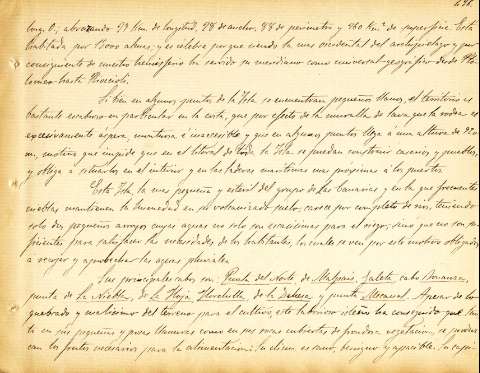 long. O., abrazando 29 Km. de longitud, 28 de anchor, 88 de perímetro y 280 Km.² de superficie. Está
habitada por 8000 almas, y es célebre porque siendo la mas occidental del archipiélago y por
consiguiente de nuestro hemisferio ha servido su meridiano como universal geográfico desde
hasta
Si bien en algunos puntos de la Isla se encuentran pequeños llanos, el territorio es
bastante escabroso en particular en la costa, que por efecto de la muralla de lava que la rodea es
excesivamente áspera, montuosa é inaccesible y que en algunos puntos llega á una altura de
m., motivo que impide que en el litoral de toda la Isla se puedan construir caserios y pueblos,
y obliga a situarlos en el interior y en las laderas montuosas mas próximas á los puertos
Esta Isla la mas pequeña y estéril del grupo de las Canarias y en la que frecuentes
nieblas mantienen la humedad en su volcanizado suelo, carece por completo de rios, teniendo
solo dos pequeños arroyos cuyas aguas no solo son escasisimas para el riego, sino que no son su-
ficientes para satisfacer las necesidades de los habitantes, los cuales se ven por este motivo obligados
a recojer y aprovechar las aguas pluviales.
Sus principales cabos son Punta del Norte, de Malpais, Caleta, cabo Bonanza,
punta de la Niebla, de la Hoja, Orchilla, de la Dehesa, y punta Apesar de lo
quebrado y malisimo del terreno para el cultivo, este laborioso isleño ha conseguido que tan-
to en sus pequeñas y pocas llanuras como en sus rocas cubiertas de frondosa vegetacion, se produz-
can los frutos necesarios para la alimentacion: su clima es sano, benigno y apacible. Su capi-